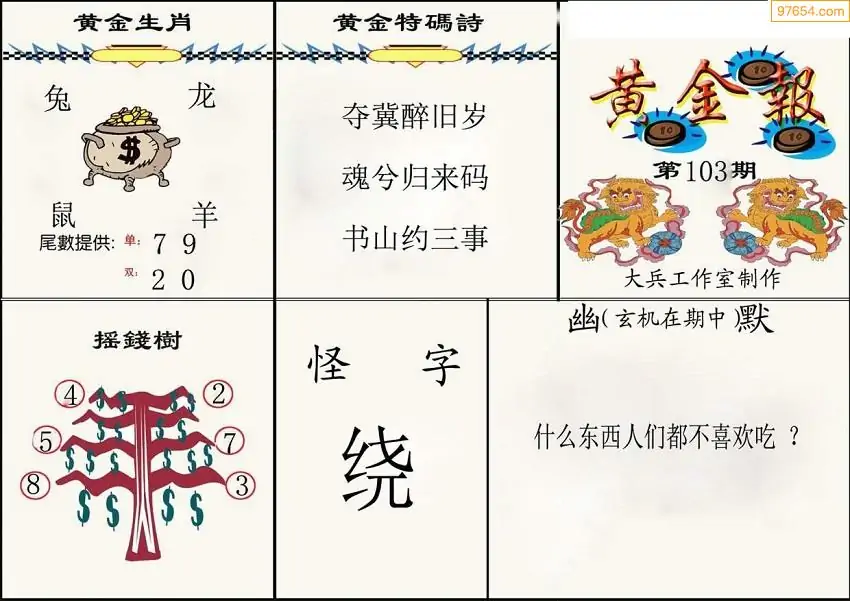 97654.com
黄金生肖
兔 龙
$
鼠 羊
尾數提供: 单: 7 9
双: 2 0
黄金特碼詩
夺冀醉旧岁
魂兮归来码
书山约三事
黄金報
10
10
10
第103期
大兵工作室制作
摇錢樹
④ ②
⑤ ⑦
⑧ ③
怪字
绕
幽(玄机在期中)默
什么东西人们都不喜欢吃 ?